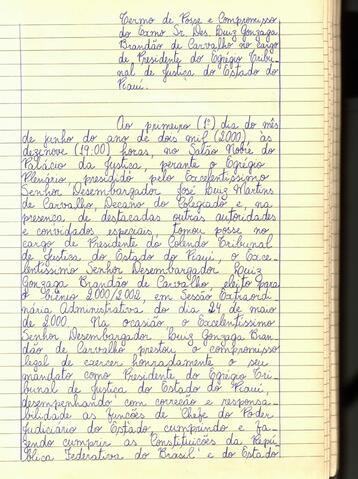 Termo de Posse e Compromisso
do Exmo Sr. Des. Luiz Gonzaga
Brandão de Carvalho no cargo
de Presidente do Egégio Tribu-
nal de Justiça do Estado do
Piauí.
Ao primeiro (1º) dia do mês
de junho do ano de dois mil (2000) às
dezenove (19:00) horas, no Salão Nobre do
Palácio da Justiça, perante o Egégio
Plenário, presidido pelo Excelentíssimo
Senhor Desembargador José Luiz Martins
de Carvalho, Decano do Colegiado e, na
presença de destacadas outras autoridades
e convidados especiais, tomou posse no
cargo de Presidente do Colendo Tribunal
de Justiça do Estado do Piauí, o Exce-
lentíssimo Senhor Desembargador Luiz
Gonzaga Brandão de Carvalho, eleito para
o biênio 2.000/2.002, em Sessão Extraordi-
nária Administrativa do dia 24 de maio
de 2.000. Na ocasião o Excelentíssimo
Senhor Desembargador Luiz Gonzaga Bran-
dão de Carvalho prestou o compromisso
legal de exercer honradamente o seu
mandato como Presidente do Egégio Tri-
bunal de Justiça do Estado do Piauí,
desempenhando com correção e responsa-
bilidade as funções de Chefe do Poder
Judiciário do Estado, cumprindo e fa-
zendo cumprir as Constituições da Repú-
blica Federativa do Brasil e do Estado